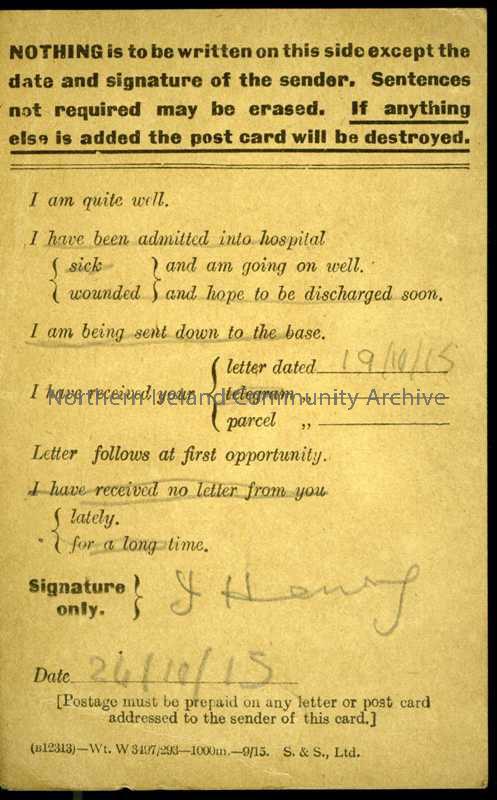 NOTHING is to be written on this side except the
date and signature of the sender. Sentences
not required may be erased. If anything
else is added the post card will be destroyed.
I am quite well.
I have been admitted into hospital
{ sick } and am going on well.
{ wounded } and hope to be discharged soon.
I am being sent down to the base.
I have received your { letter dated 19/10/15
telegram „
parcel „
Northern Ireland Community Archive
Letter follows at first opportunity.
I have received no letter from you
{ lately.
{ for a long time.
Signature only. } J Henry
Date 24/10/15
[Postage must be prepaid on any letter or post card
addressed to the sender of this card.]
(B12313)—Wt. W3497/293—1000m.—9/15. S. & S., Ltd.